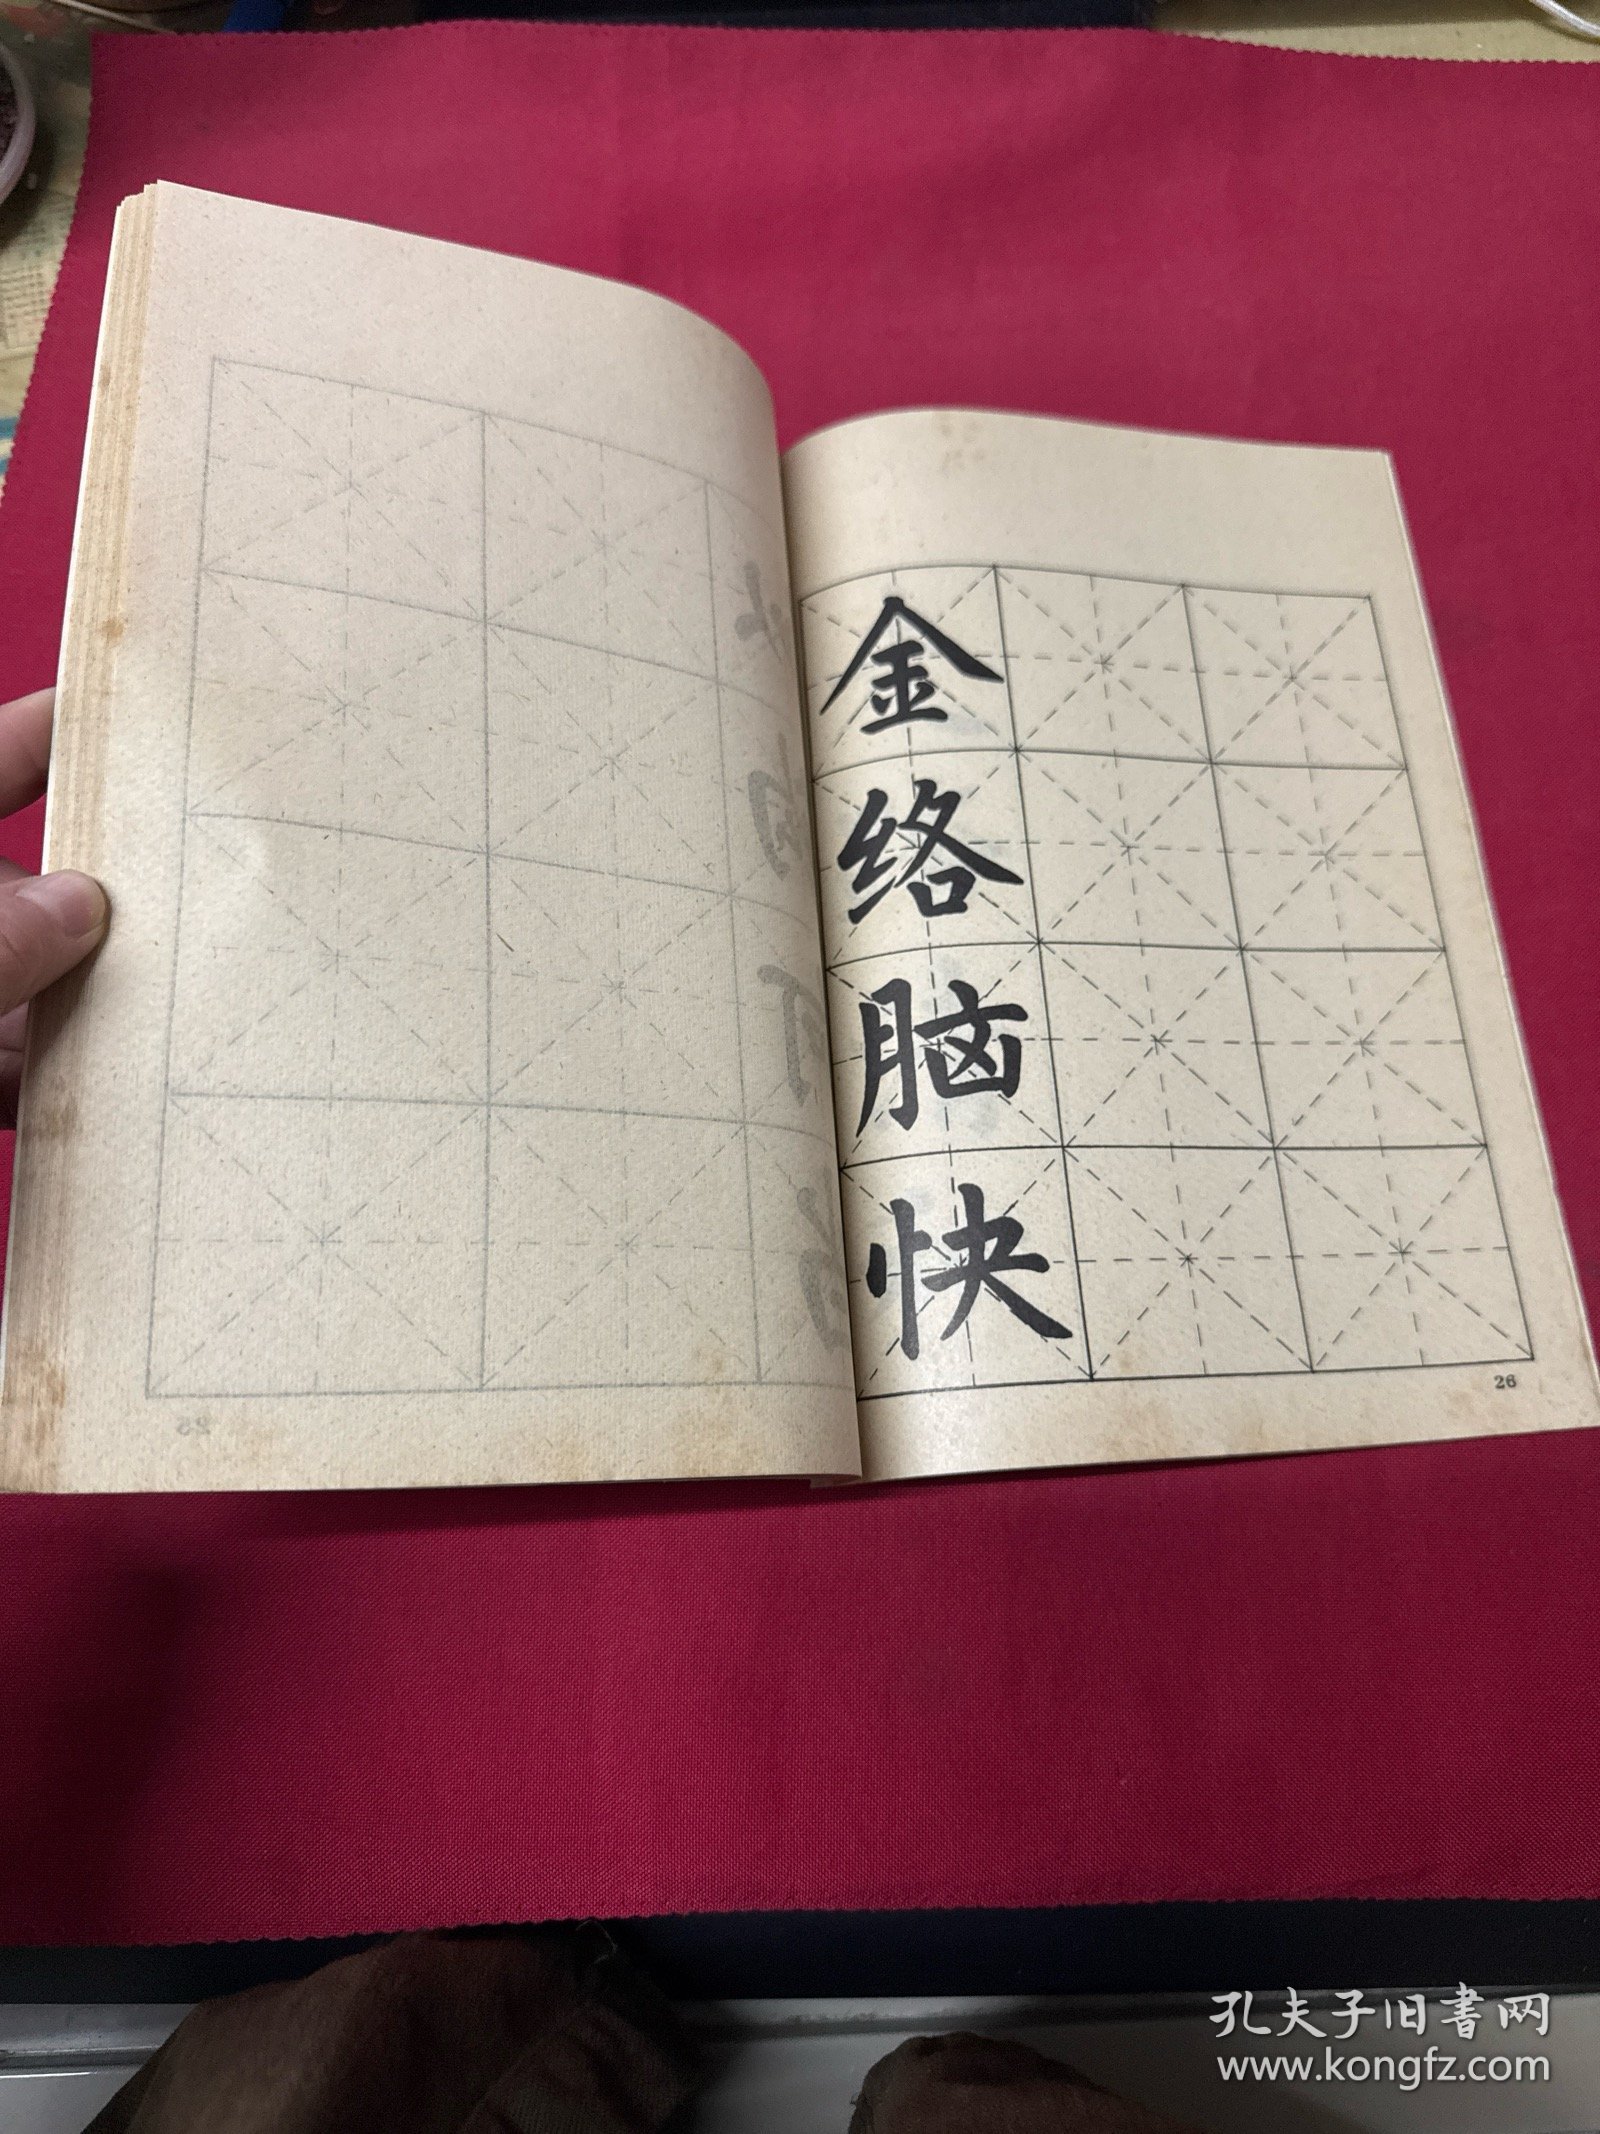 金
络
脑
快
26
25
孔夫子旧書网
www.kongfz.com